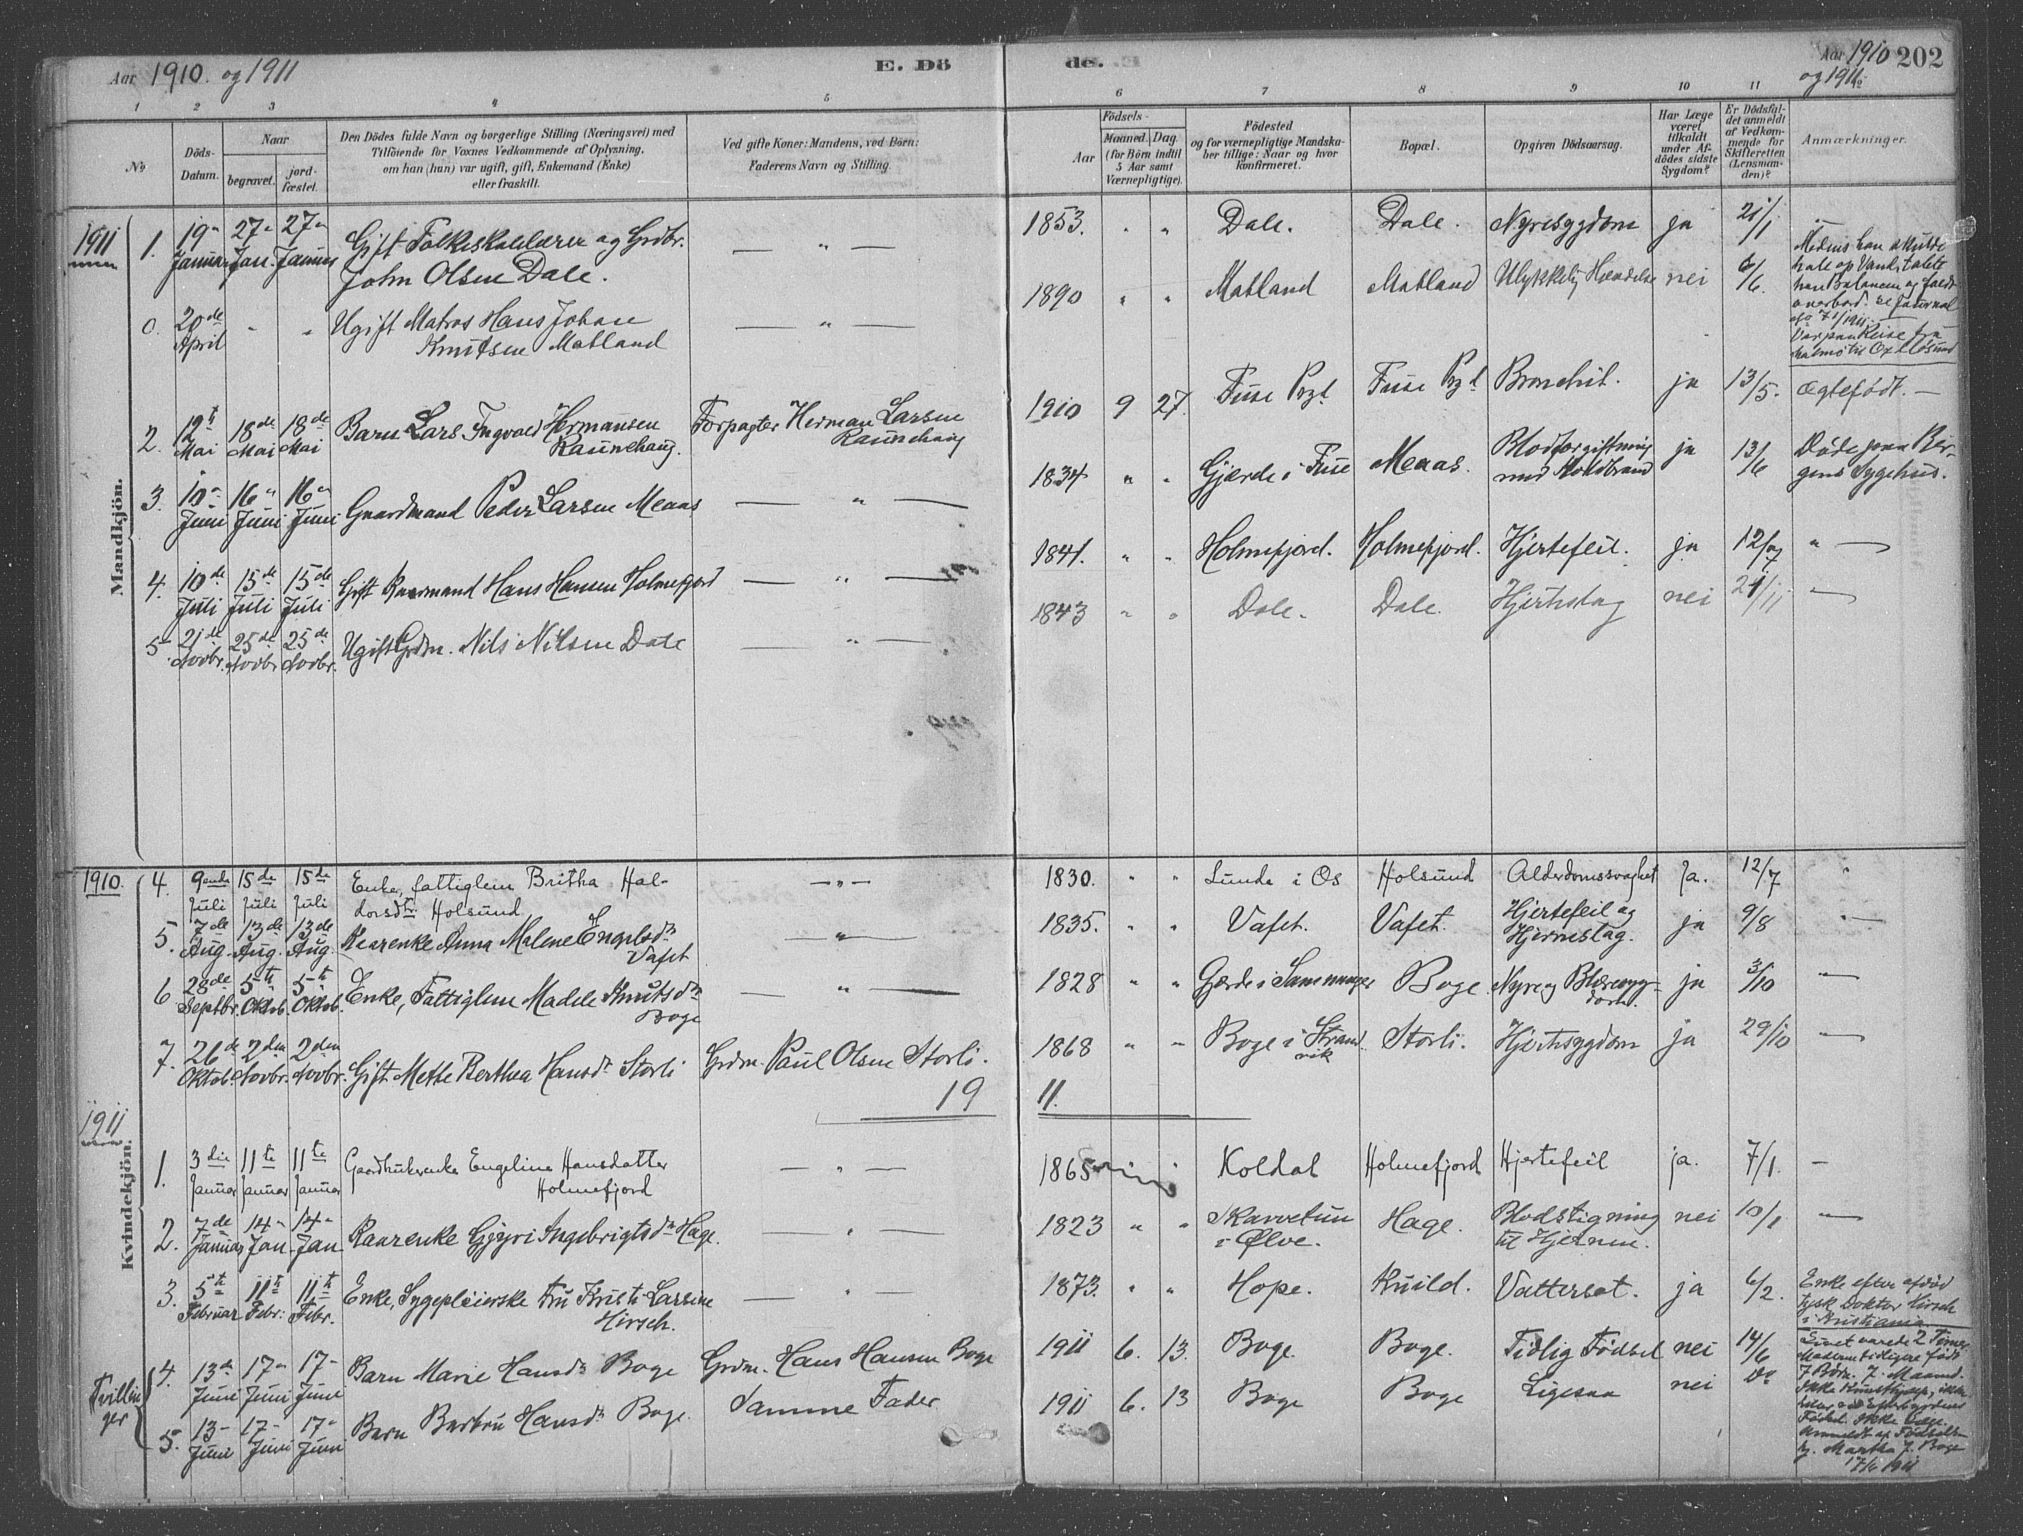 Aar 1910. og 1911
E. Dö
de.
Aar 1910 202
og 1911
1 2 3 4 5 6 7 8 9 10 11 12
No
Döds-Datum.
Naar
begravet. jordfæstet.
Den Dödes fulde Navn og borgerlige Stilling (Næringsvei) med
Tilföiende for Voxnes Vedkommende af Oplysning,
om han (hun) var ugift, gift, Enkemand (Enke)
eller fraskilt.
Ved gifte Koner: Mandens, ved Börn:
Faderens Navn og Stilling.
Födsels-
Aar
Maaned. Dag.
(for Börn indtil
5 Aar samt
Værnepligtige).
Födested
og for værnepligtige Mandska-
ber tillige: Naar og hvor
konfirmeret.
Bopæl.
Opgiven Dödsaarsag.
Har Læge
været
tilkaldt
under Af-
dödes sidste
Sygdom?
Er Dödsfal-
det anmeldt
af Vedkom-
mende for
Skifteretten
(Lensman-
den)?
Anmærkninger.
Mandkjön.
1911
1. 19- Januar 27- Jan. 27- Januar Gift Folkeskolelærer og Grdbr. John Olsen Dale. — " — 1853. " " Dale. Dale. Nyresygdom ja 21/1 —
0. 20de April " " Ugift Matros Hans Johan Knutsen Matland — " — 1890 " " Matland Matland Ulykkelig Hændelse nei 6/6.
Medens han skulde
hale op Vand, tabte
han Balancen og faldt
overbord.
2. 12t Mai 18de Mai 18de Mai Barn Lars Ingvald Hermansen Raunehaug. Forpagter Herman Larsen Raunehaug 1910 9 27. Fuse Prgd Fuse Prgd Bronchit. ja 13/5. Ægtefødt. —
3. 10- Juni 16- Juni 16- Juni Gaardmand Peder Larsen Meaas — " — 1834 " " Gjerde i Fuse Meaas. Blodforgiftning med Koldbrand ja 13/6 Døde paa Bergens Sygehus.
4. 10de Juli 15de Juli 15de Juli Gift Kaarmand Hans Hansen Holmefjord — " — 1841. " " Holmefjord. Holmefjord. Hjertefeil. ja 12/7 " —
5. 21de Novbr. 25de Novbr. 25de Novbr. Ugift Grdm. Nils Nilsen Dale — " — 1843 " " Dale. Dale. Hjerteslag nei 21/11 —
Kvindekjön.
1910.
4. 9ende Juli 15de Juli 15de Juli Enke, fattiglem Britha Haldorsdtr Holsund — " — 1830. " " Lunde i Os Holsund Alderdomssvaghet Ja. 12/7 "
5. 7de Aug. 13de Aug. 13de Aug. Kaarenke Anna Malene Engelsdtr Vafet — " — 1835. " " Vafet. Vafet. Hjertefeil og Hjerneslag. ja 9/8 —
6. 28de Septbr. 5te Oktob. 5te Oktob. Enke, Fattiglem Madele Knutsdtr Boge — " — 1828 " " Gjerde i Samnanger Boge. Nyre og Blæresygdom. ja 3/10 —
7. 26de Oktob. 2den Novbr. 2den Novbr. Gift Mette Berthea Hansdtr Storli Grdm. Paul Olsen Storli. 1868 " " Boge i Strandvik Storli. Hjertesygdom ja 29/10 —
19 11.
1911
1. 3die Januar 11te Januar 11te Januar Gaardbrukerenke Engeline Hansdatter Holmefjord — " — 1865 " " Koldal Holmefjord Hjertefeil ja. 7/1. —
2. 7de Januar 14- Jan. 14- Jan. Kaarenke Gjyri Ingebrigtsdtr Hage. — " — 1823 " " Skarvetun i Ølve. Hage. Blodstigning til Hjernen. nei 10/1 —
3. 5te Februar 11te Febr. 11te Febr. Enke, Sygepleierske fru Kristi Larsine Hirsch. — " — 1873. " " Hope. Kuild. Vattersot. ja 6/2.
Enke efter afdød
tysk Doktor Hirsch
i Kristiania.
Tvillinger
4. 13de Juni 17- Juni 17- Juni Barn Marie Hansdtr Boge Grdm. Hans Hansen Boge 1911 6. 13. Boge. Boge. Tidlig Fødsel nei 14/6
5. 13- Juni 17- Juni 17- Juni Barn Barbru Hansdtr Boge. Samme Fader 1911 6. 13 Boge Boge Ligesaa nei Do
Livet varede 2 Timer
Moderen tidligere født
7 Børn. 7. Maaned.
Martha J. Boge
17/6 1911